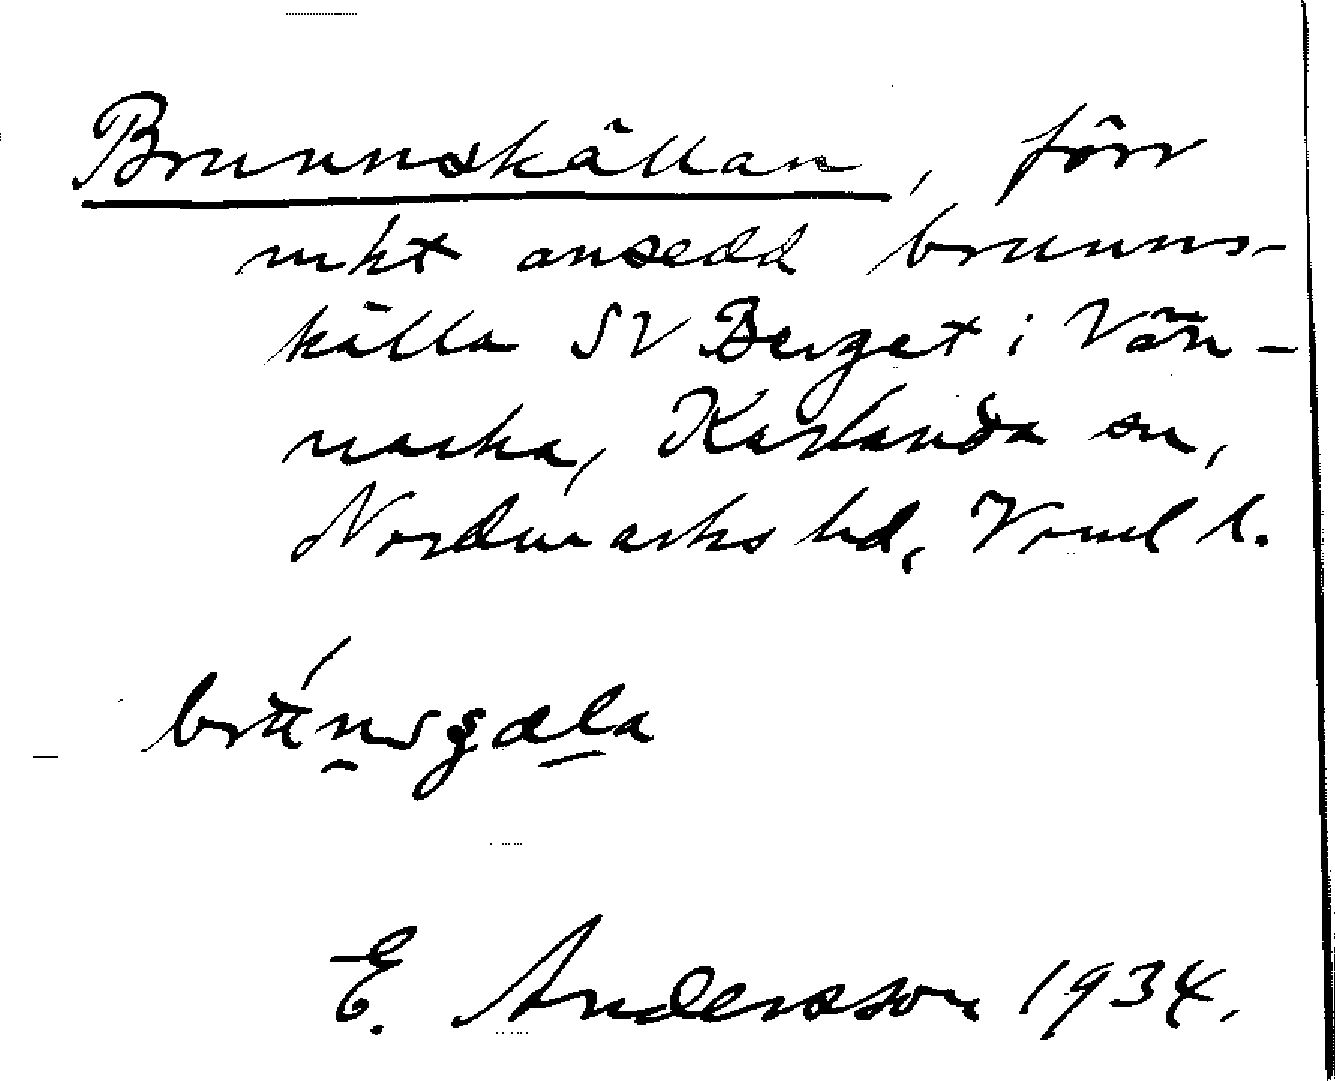 Brunnskällan, förr
mkt ansedd brunns-
källa SV Berget i Vän-
nacka, Karlanda sn,
Nordmarks hd, Vrml l.
E. Andersson 1934.